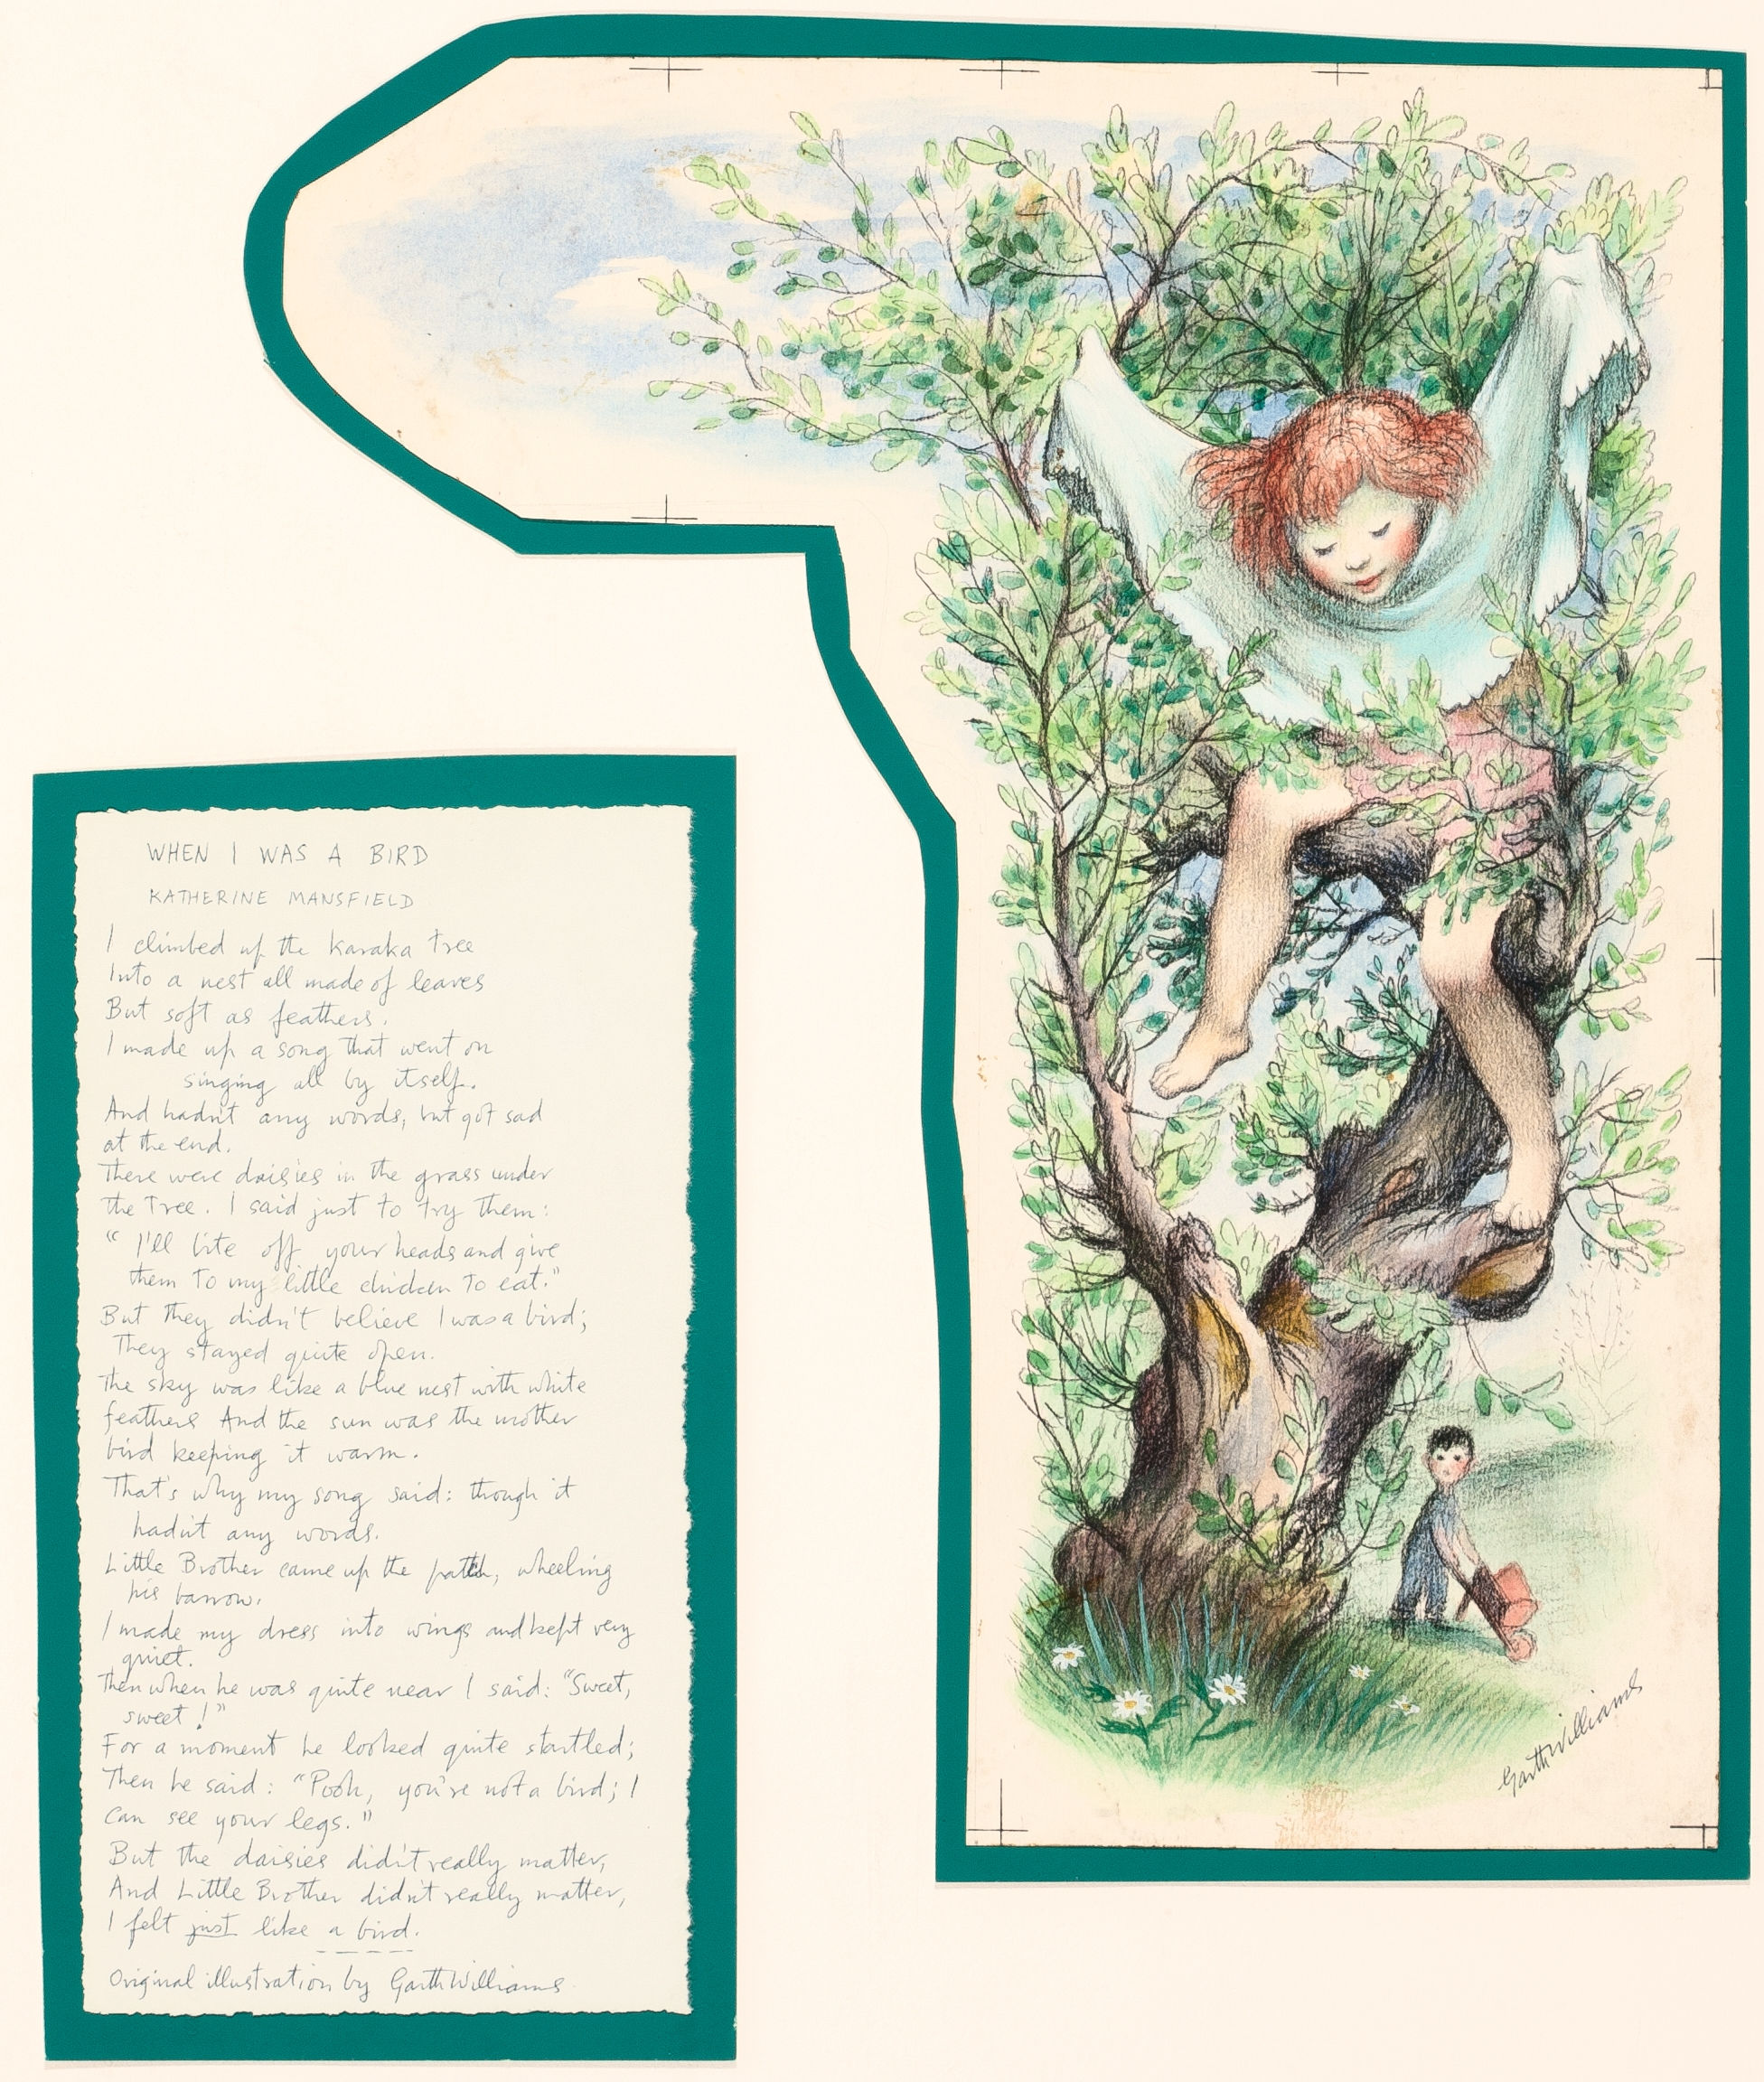 WHEN I WAS A BIRD
KATHERINE MANSFIELD
I climbed up the Karaka Tree
Into a nest all made of leaves
But soft as feathers.
I made up a song that went on
singing all by itself.
And hadn't any words, but got sad
at the end.
There were daisies in the grass under
the Tree. I said just to try them:
"I'll bite off your heads and give
them to my little chicken to eat."
But they didn't believe I was a bird;
They stayed quite open.
The sky was like a blue nest with white
feathers And the sun was the mother
bird keeping it warm.
That's why my song said: though it
hadn't any words.
Little Brother came up the path, wheeling
his barrow.
I made my dress into wings and kept very
quiet.
Then when he was quite near I said: "Sweet,
sweet!"
For a moment he looked quite startled;
Then he said: "Pooh, you're not a bird; I
can see your legs."
But the daisies didn't really matter,
And Little Brother didn't really matter,
I felt just like a bird.
Original illustration by Garth Williams
Garth Williams